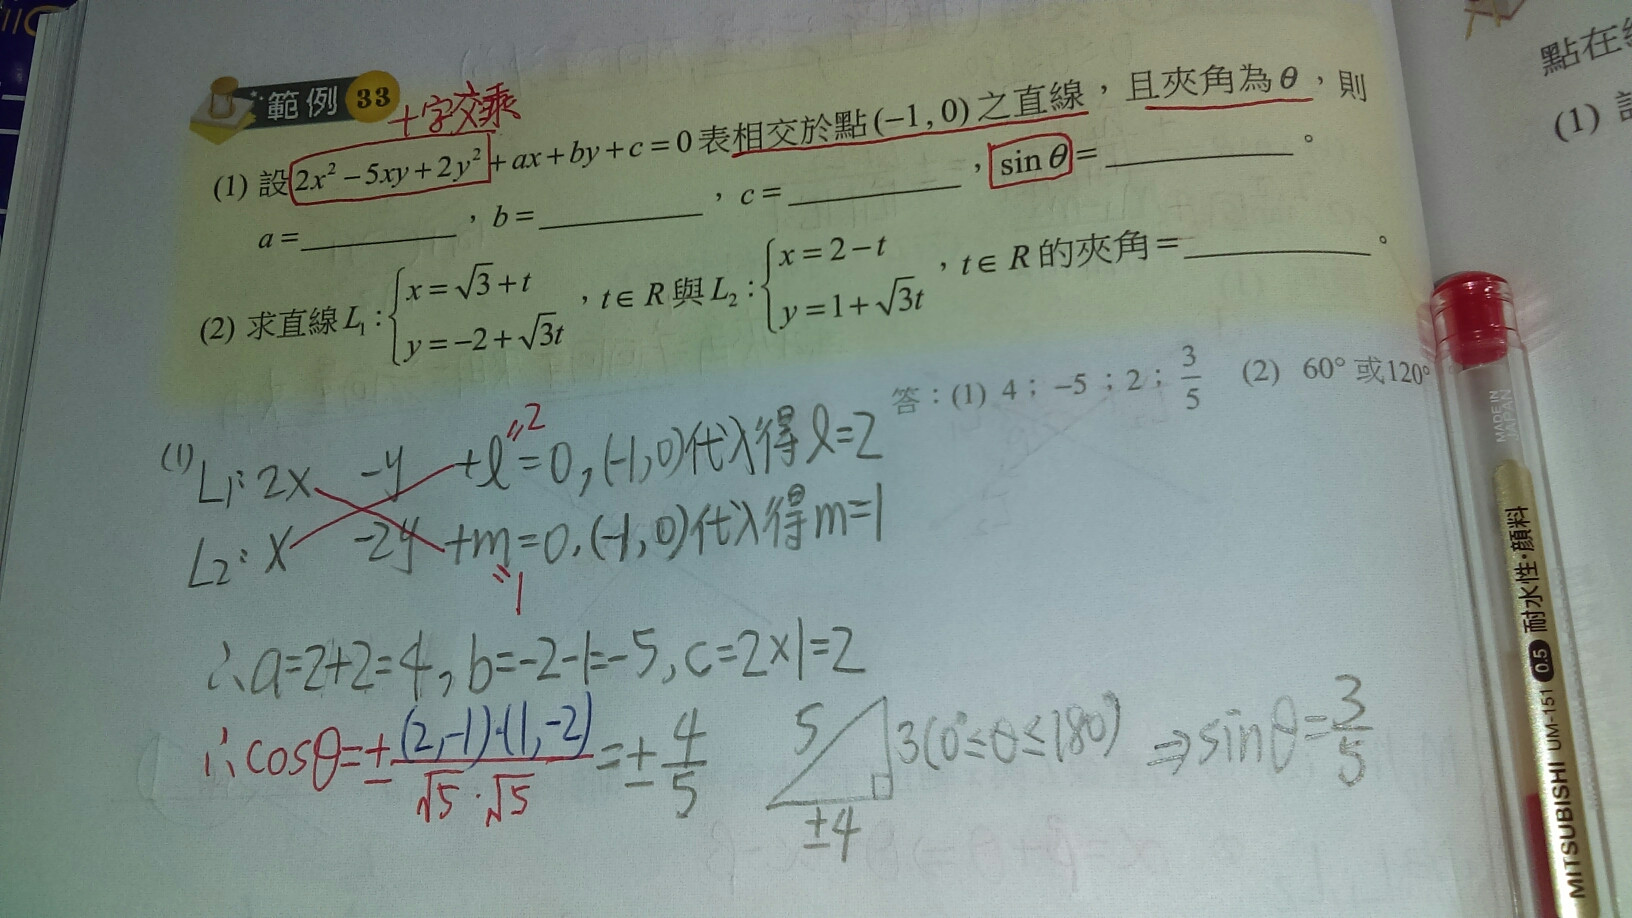 範例 33
十字交乘
(1) 設 2x² − 5xy + 2y² + ax + by + c = 0 表相交於點 (−1, 0) 之直線，且夾角為 θ，則
a = ________，b = ________，c = ________，sin θ = ________。
(2) 求直線 L₁ : { x = √3 + t , y = −2 + √3t ，t ∈ R 與 L₂ : { x = 2 − t , y = 1 + √3t ，t ∈ R 的夾角 = ________。
答：(1) 4；−5；2；3/5 (2) 60° 或 120°
(1) L₁: 2x −y +l = 0, (-1, 0)代入得 l = 2
"2
L₂: x −2y +m = 0, (-1, 0)代入得 m = 1
"1
∴ a = 2+2 = 4, b = -2-1 = -5, c = 2×1 = 2
∴ cosθ = ± (2, -1)·(1, -2) / √5·√5 = ± 4/5
5 3 ±4 (0° ≤ θ ≤ 180°) ⇒ sinθ = 3/5
點在
(1)
MADE IN JAPAN
MITSUBISHI UM-151 0.5 耐水性·顔料